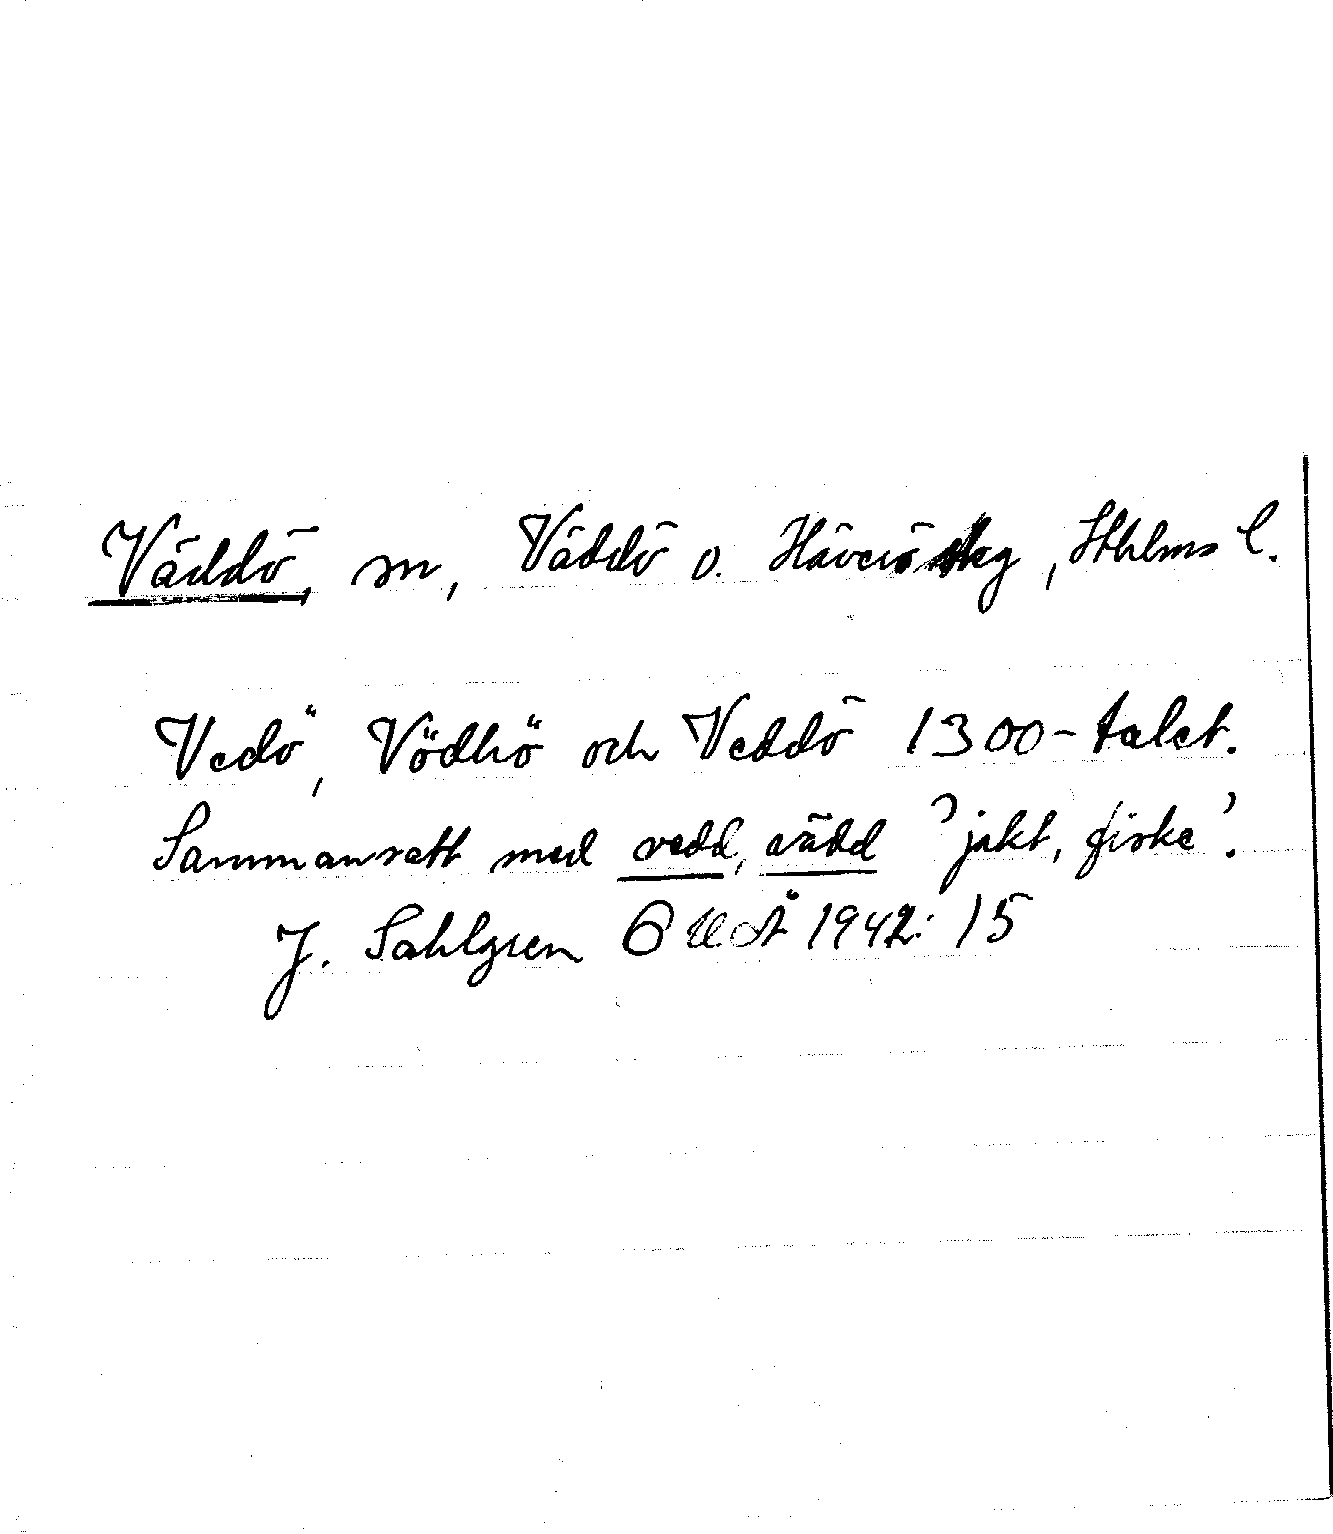 Väddö, sn, Väddö o. Häverö skg, Sthlms l.
Vedö, Vödhö och Veddö 1300-talet.
Sammansatt med vedd, vädd 'jakt, fiske'.
J. Sahlgren OUÅ 1942: 15